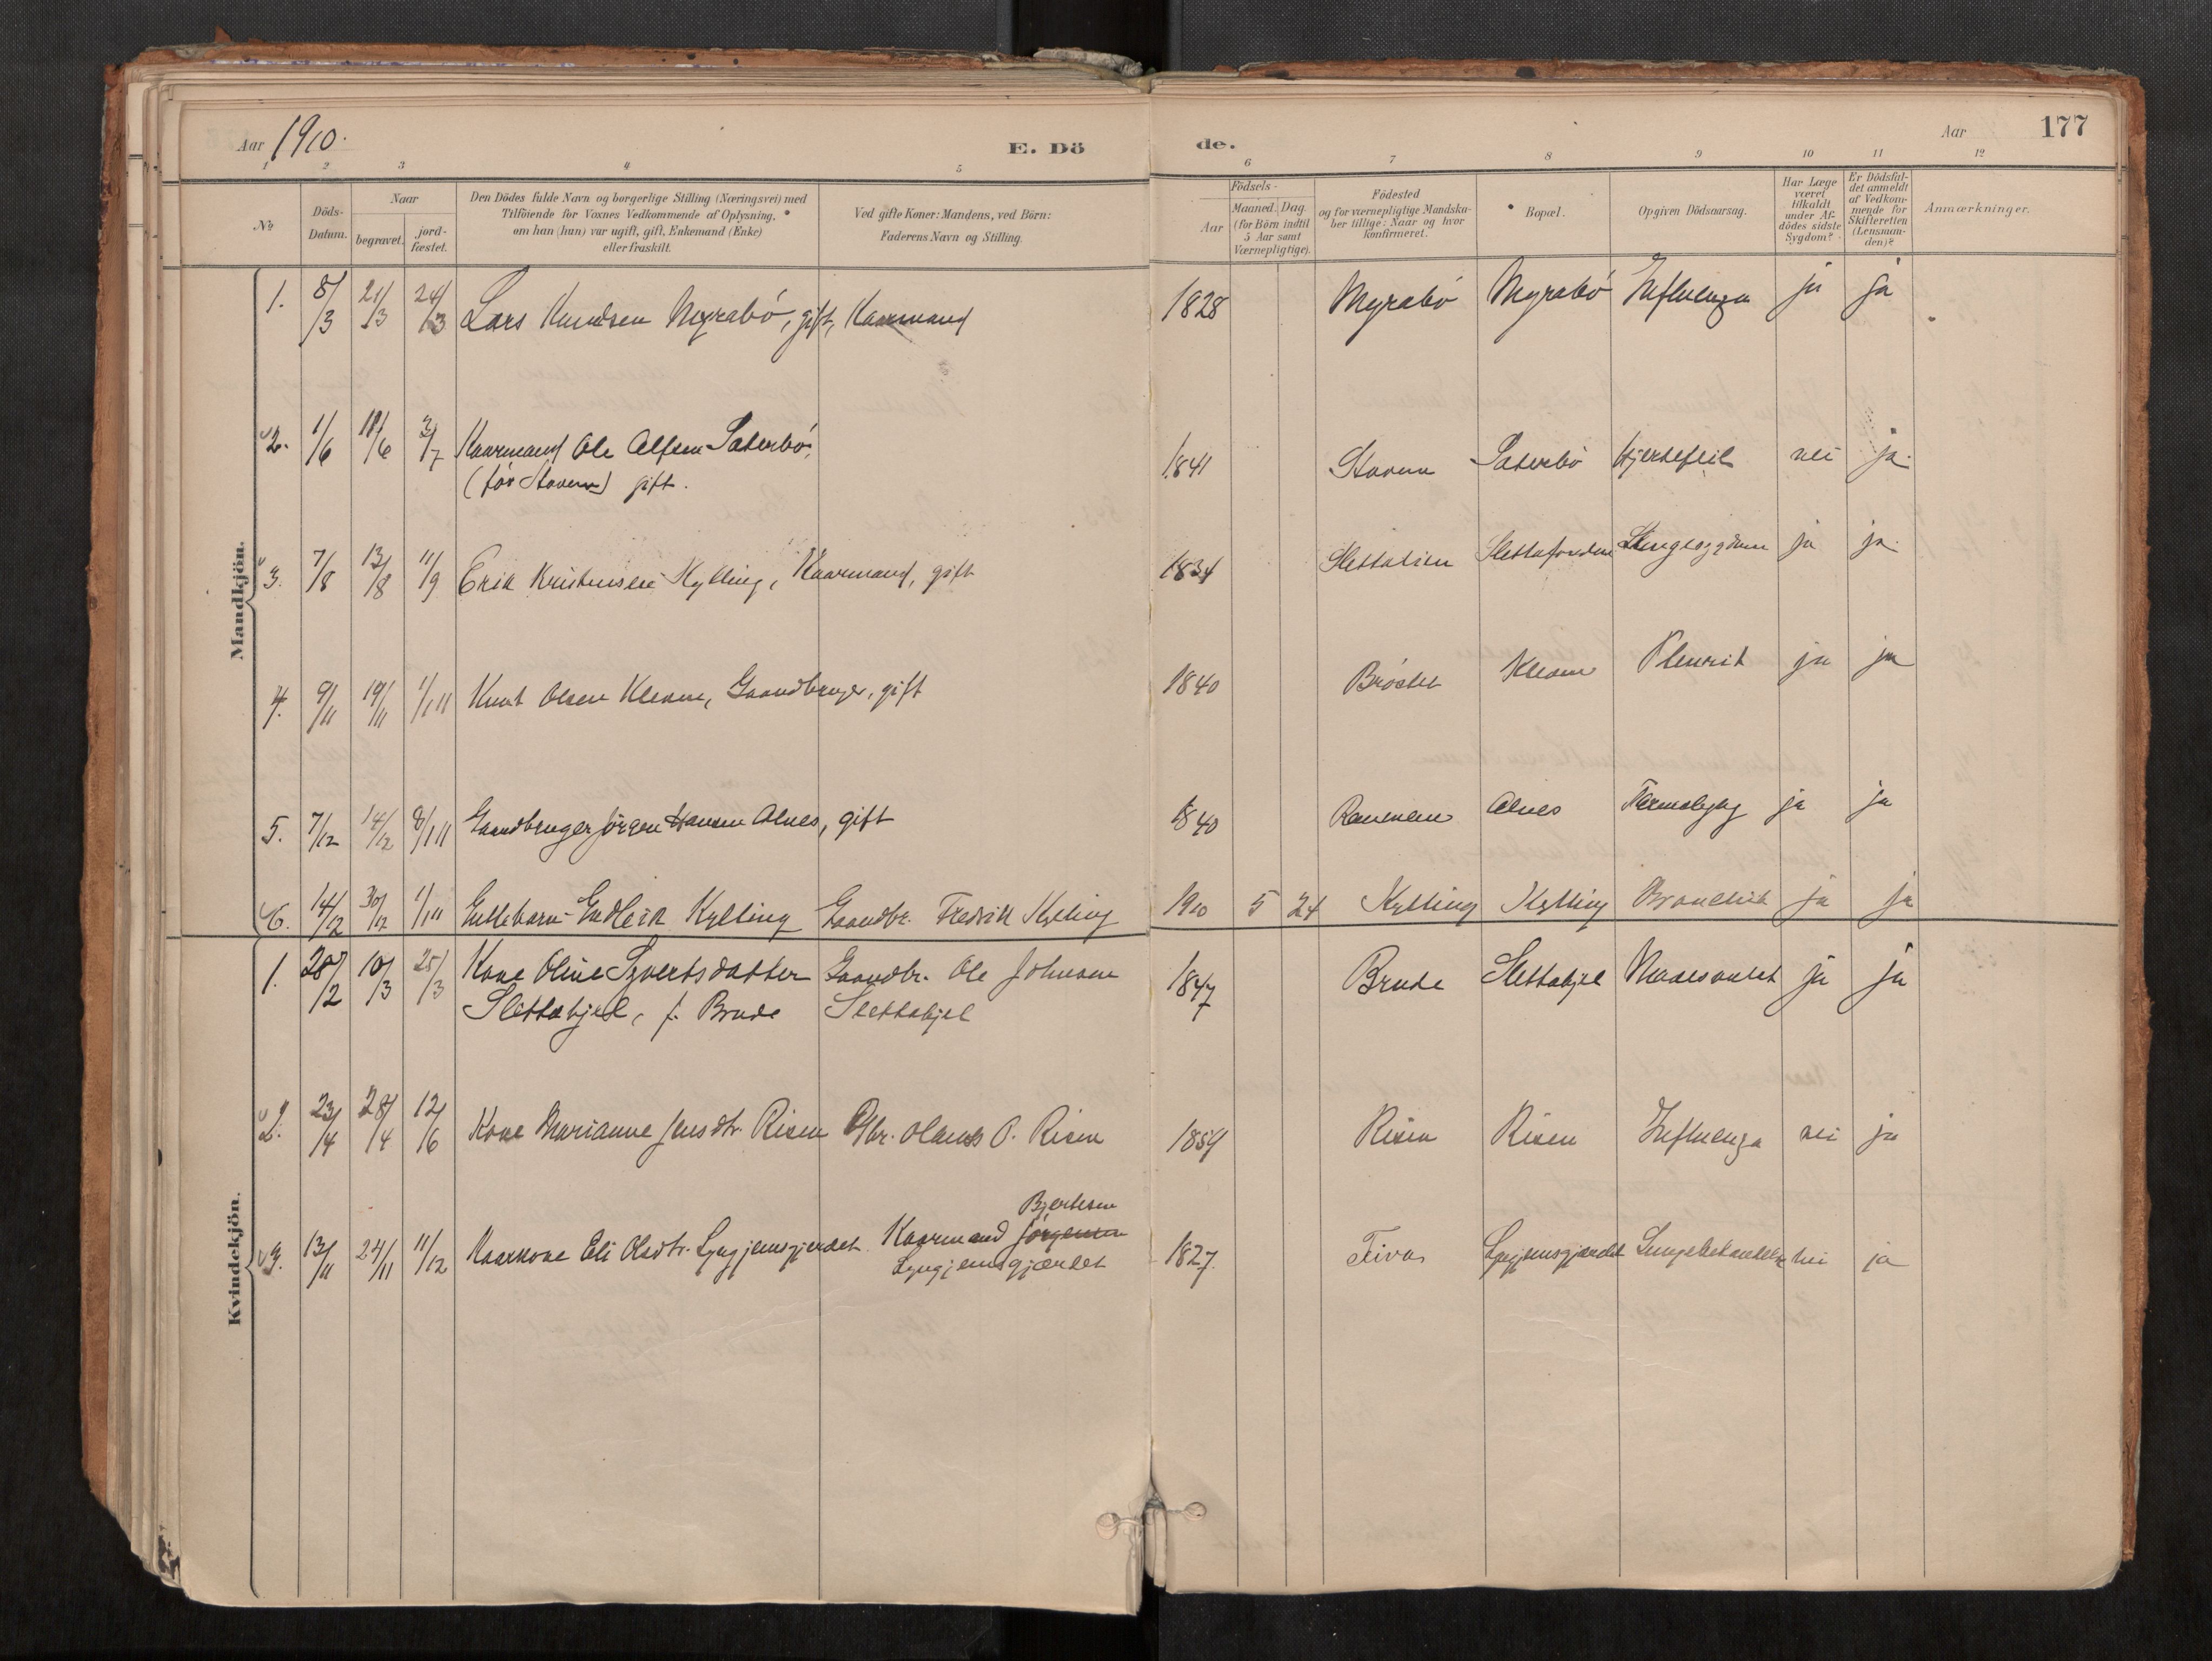 Aar 1910.
E. Dö
de.
Aar
177
1 2 3 4 5 6 7 8 9 10 11 12
No
Döds-Datum.
Naar
begravet.
jord-fæstet.
Den Dödes fulde Navn og borgerlige Stilling (Næringsvei) med
Tilföiende for Voxnes Vedkommende af Oplysning,
om han (hun) var ugift, gift, Enkemand (Enke)
eller fraskilt.
Ved gifte Koner: Mandens, ved Börn:
Faderens Navn og Stilling.
Födsels-
Aar
Maaned. Dag.
(for Börn indtil
5 Aar samt
Værnepligtige).
Födested
og for værnepligtige Mandska-
ber tillige: Naar og hvor
konfirmeret.
Bopæl.
Opgiven Dödsaarsag.
Har Læge
været
tilkaldt
under Af-
dödes sidste
Sygdom?
Er Dödsfal-
det anmeldt
af Vedkom-
mende for
Skifteretten
(Lensman-
den)?
Anmærkninger.
Mandkjön.
1. 8/3 21/3 24/3 Lars Knudsen Myrabó, gift, Kaarmand 1828 Myrabó Myrabó Influenza ja ja
2. 1/6 18/6 3/7 Kaarmand Ole Alfsen Sæterbó, 1841 Staven Sæterbó Hjertefeil nei ja.
(før Staven) gift.
3. 7/8 13/8 11/9 Erik Kristensen Kylling, Kaarmand, gift 1834 Slettalien ja ja.
4. 9/11 19/11 1/1 11 Knut Olsen Kleven, Gaardbruger, gift 1840 Bróste Kleven Pleurit ja ja
5. 7/12 14/12 8/1 11 Gaardbruger Jörgen Hansen Alnes, gift 1840 Alnes ja ja
6. 14/12 30/12 1/1 11 Endleik Kylling Gaardbr. Fredrik Kylling 1910 5 24 Kylling Kylling Bronchit ja ja
Kvindekjön.
1. 28/2 10/3 25/3 Kone Oline Syvertsdatter Gaardbr. Ole Johnsen 1847 Brude Slettahjel ja ja
Slettahjel, f. Brude Slettahjel
2. 23/4 28/4 12/6 Kone Marianne Jensdtr. Risen Gbr. Olaus O. Risen 1859 Risen Risen Influenza nei ja
Bjertesen
3. 13/11 24/11 11/12 Kaarkone Eli Olsdtr. Lyngjemsgjerdet Kaarmand Jörgensen 1827 Tiva Lyngjemsgjærdet Lungebetændelse nei ja
Lyngjemsgjærdet